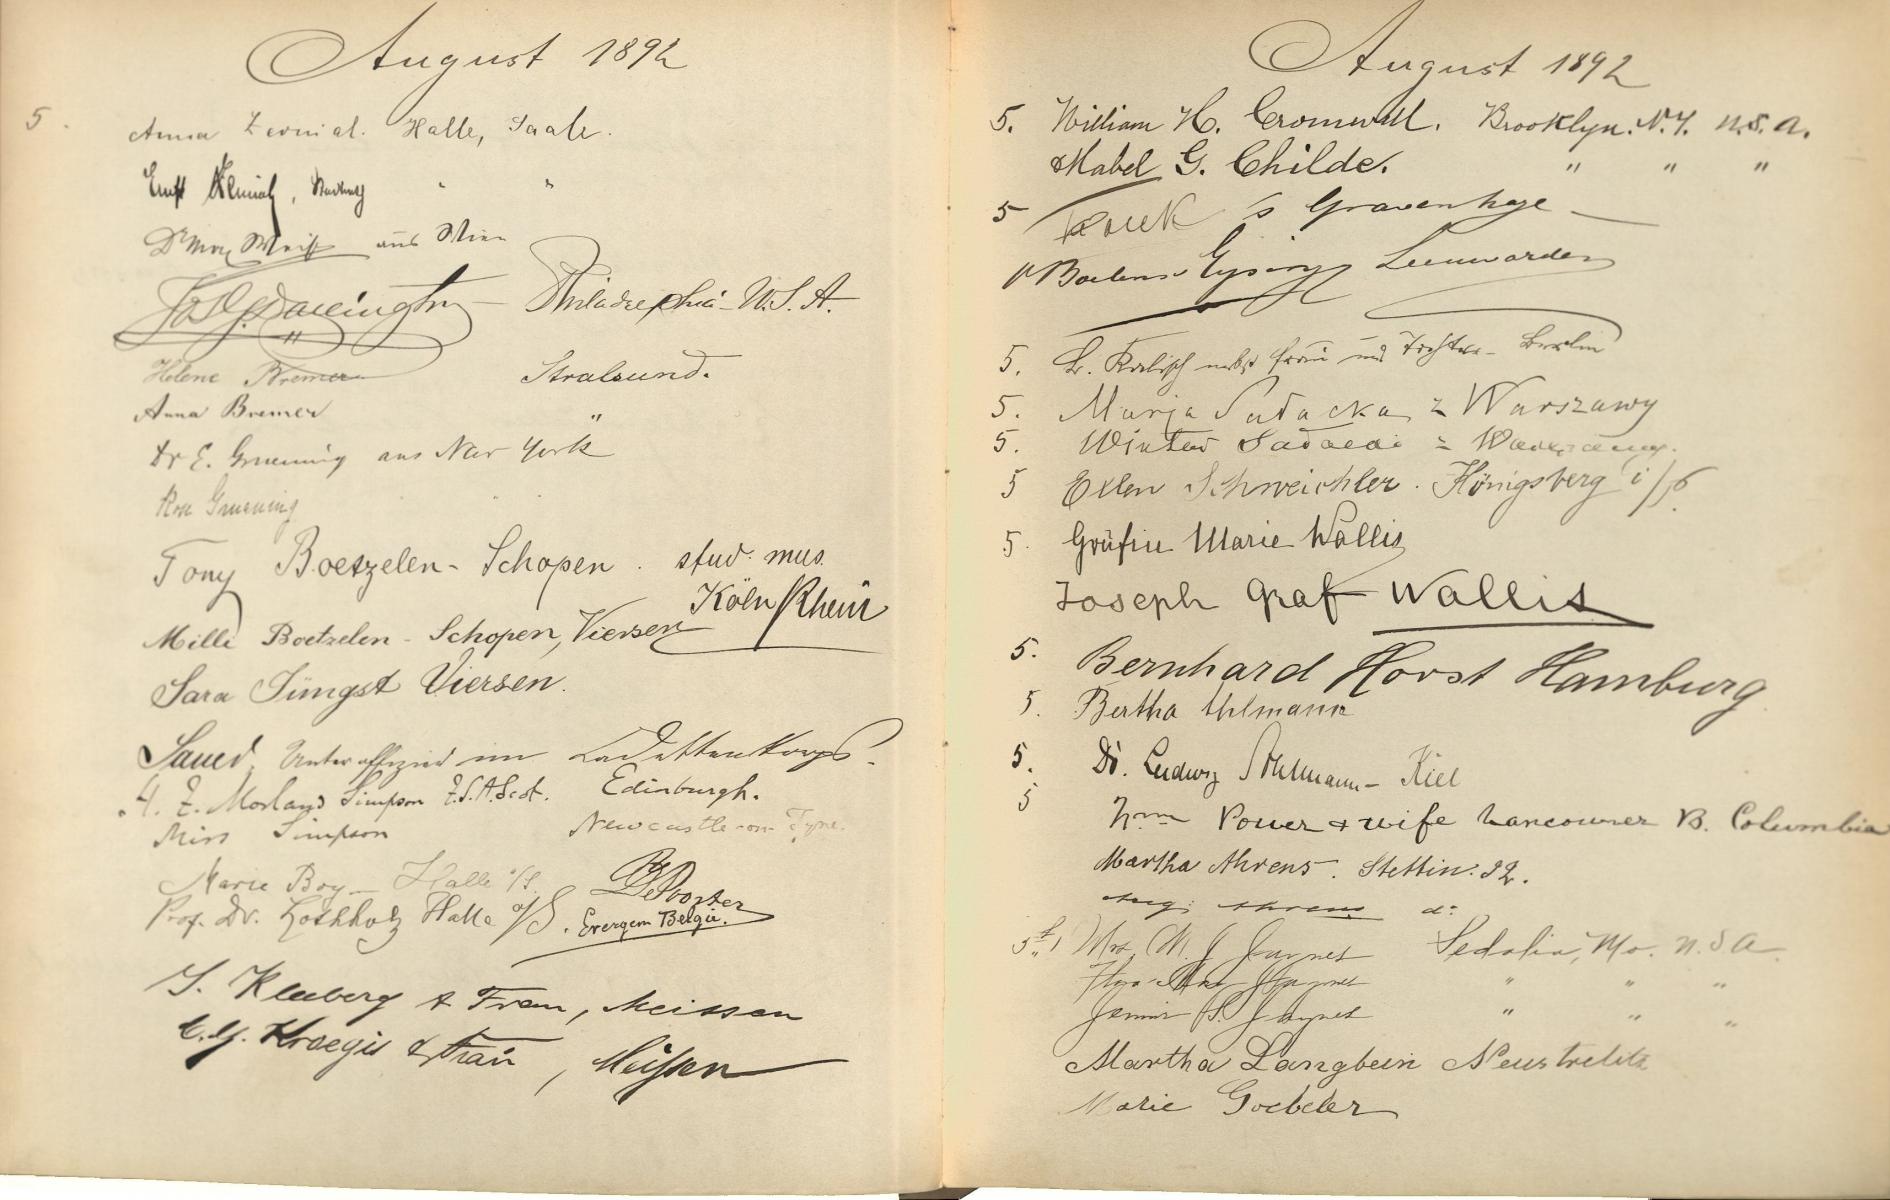 August 1892
5. Anna Zernial. Halle, Saale.
Ernst " "
Dr Max Weiss aus Wien
Philadelphia - U.S.A.
Helene Bremer Stralsund.
Anna Bremer "
Dr E. Gruening aus New York
Rose Gruening " "
Tony Boetzelen - Schopen. stud. mus.
Köln/Rhein
Milli Boetzelen - Schopen, Viersen
Sara Jüngst Viersen.
Sauer, Unteroffizier im Kadettenkorps.
H. F. Morland Simpson F.S.A. Scot. Edinburgh.
Miss Simpson Newcastle-on-Tyne.
Marie Boy - Halle a/S.
De Poorter
Prof. Dr. Lothholz Halle a/S.
Evergem Belgie.
J. Kleeberg & Frau, Meissen
& Frau, Meißen
August 1892
5. William H. Cromwell. Brooklyn. N.Y. U.S.A.
& Mabel G. Childe. " " "
5 's Gravenhage
v Boelens Eysinga Leeuwarden
5. L. Kalisch nebst Frau und Tochter - Berlin
5. Marja Sadacka z Warszawy
5. z
5 Ellen Schweichler. Königsberg i/P.
5. Gräfin Marie Wallis
Joseph Graf Wallis
5. Bernhard Horst Hamburg
5. Bertha Ahlmann
5. Dr. Ludwig Ahlmann - Kiel
5 Wm Power & wife Vancouver B. Columbia
Martha Ahrens. Stettin. 92.
Aug. Ahrens do
5th Mrs. M. J. Jaynes Sedalia, Mo. U.S.A.
Jaynes " " "
Jennie S. Jaynes " " "
Martha Langbein Neustrelitz
Marie Goebeler